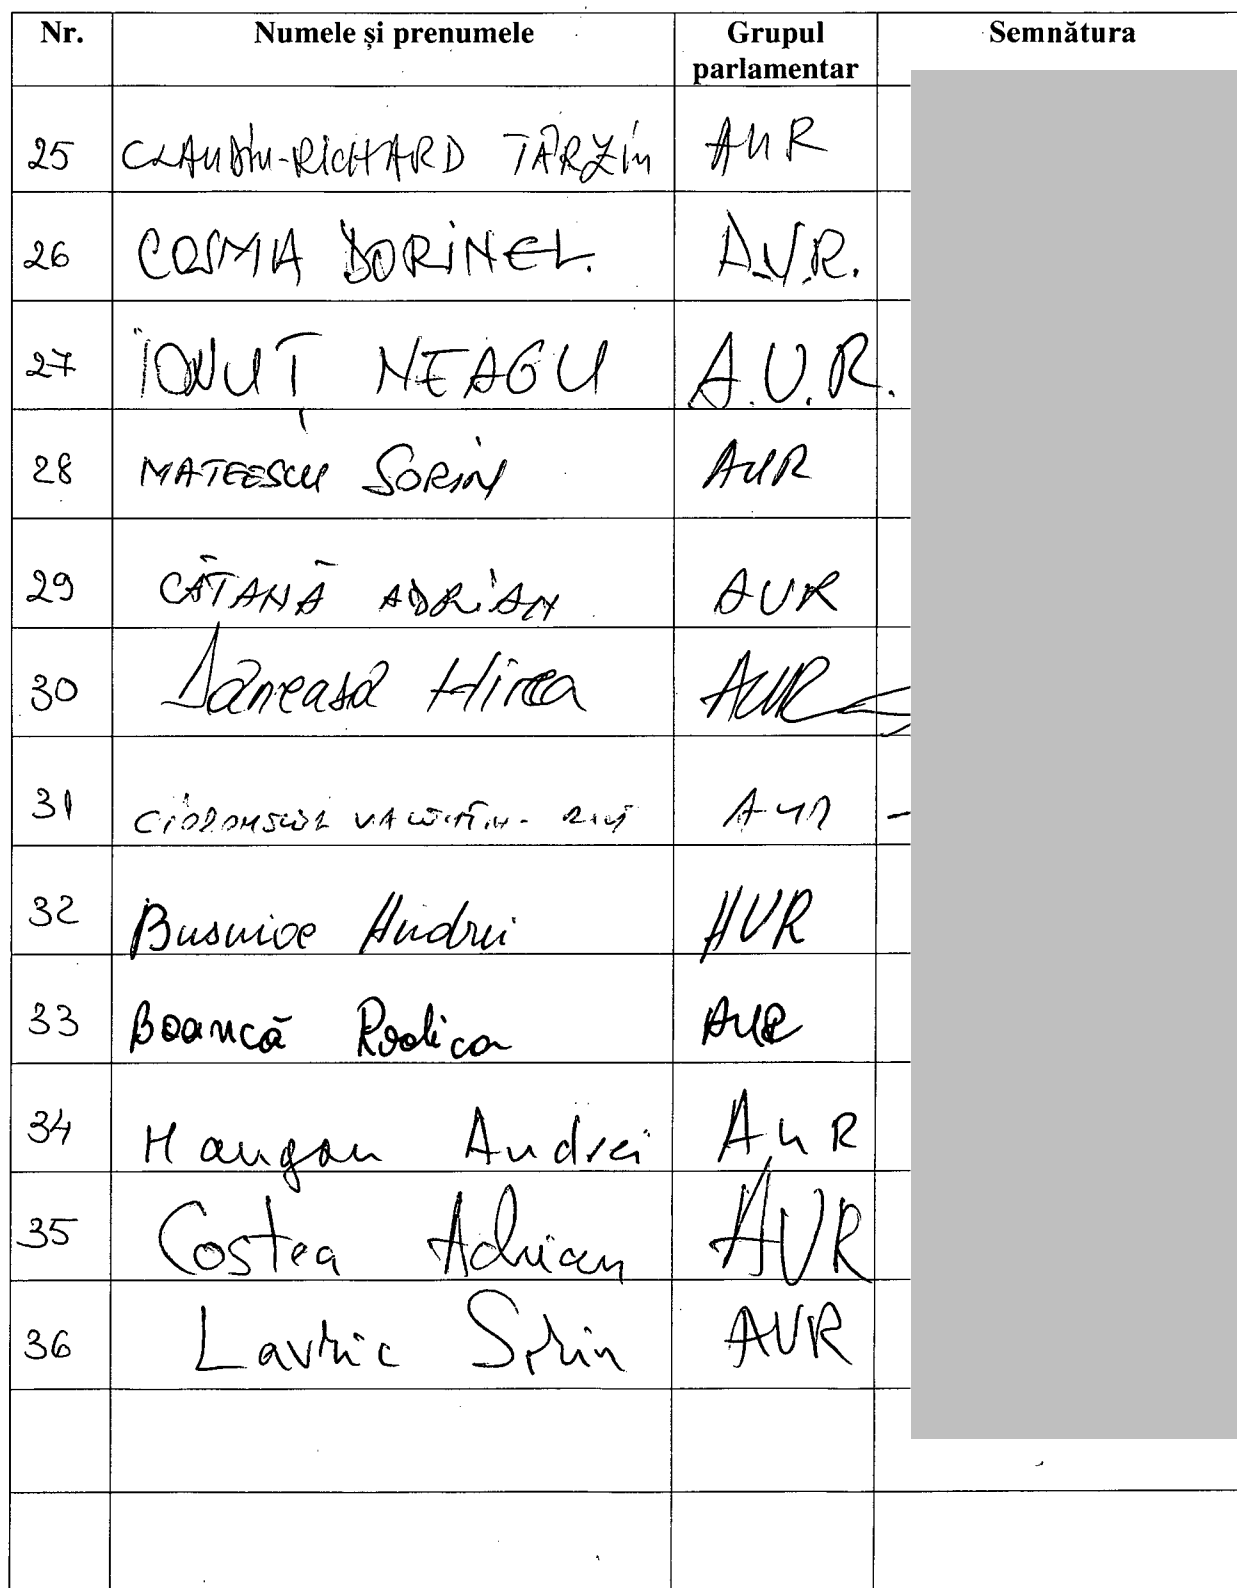 Nr. Numele și prenumele Grupul parlamentar Semnătura
25 CLAUDIU-RICHARD TÂRZIU AUR
26 COSMA DORINEL. A.U.R.
27 IONUȚ NEAGU A.U.R.
28 MATEESCU SORIN AUR
29 CĂTANĂ ADRIAN AUR
30 Dăneasă Mircea AUR
31 AUR
32 Busuioc Andrei AUR
33 Boancă Rodica AUR
34 Mangan Andrei AUR
35 Costea Adrian AUR
36 Lavric Sorin AUR